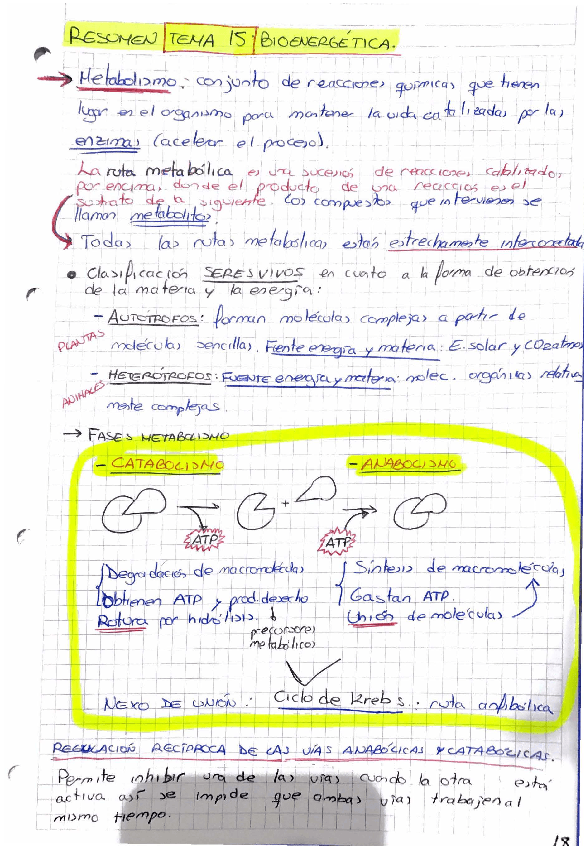 RESUMEN TEMA 15: BIOENERGÉTICA.
→ Metabolismo: conjunto de reacciones químicas que tienen
lugar en el organismo para mantener la vida catalizadas por las
enzimas (acelerar el proceso).
La ruta metabólica es una sucesión de reacciones catalizadas
por enzimas, donde el producto de una reacción es el
sustrato de la siguiente. Los compuestos que intervienen se
llaman metabolitos.
→ Todas las rutas metabólicas están estrechamente interconectada
• Clasificación SERES VIVOS en cuanto a la forma de obtención
de la materia y la energía:
- AUTÓTROFOS: forman moléculas complejas a partir de
PLANTAS moléculas sencillas. Fuente energía y materia: E. solar y CO2 atmos
- HETERÓTROFOS: FUENTE energía y materia: molec. orgánicas relativa
ANIMALES mente complejas.
→ FASES METABOLISMO
- CATABOLISMO - ANABOLISMO
+
ATP ATP
Degradación de macromoléculas Síntesis de macromoléculas
Obtienen ATP y prod. desecho Gastan ATP.
Rotura por hidrólisis. Unión de moléculas
precursores
metabólicos
NEXO DE UNIÓN: Ciclo de Krebs: ruta anfibólica
REGULACIÓN RECÍPROCA DE LAS VÍAS ANABÓLICAS Y CATABÓLICAS.
Permite inhibir una de las vías cuando la otra está
activa así se impide que ambas vías trabajen al
mismo tiempo.
18